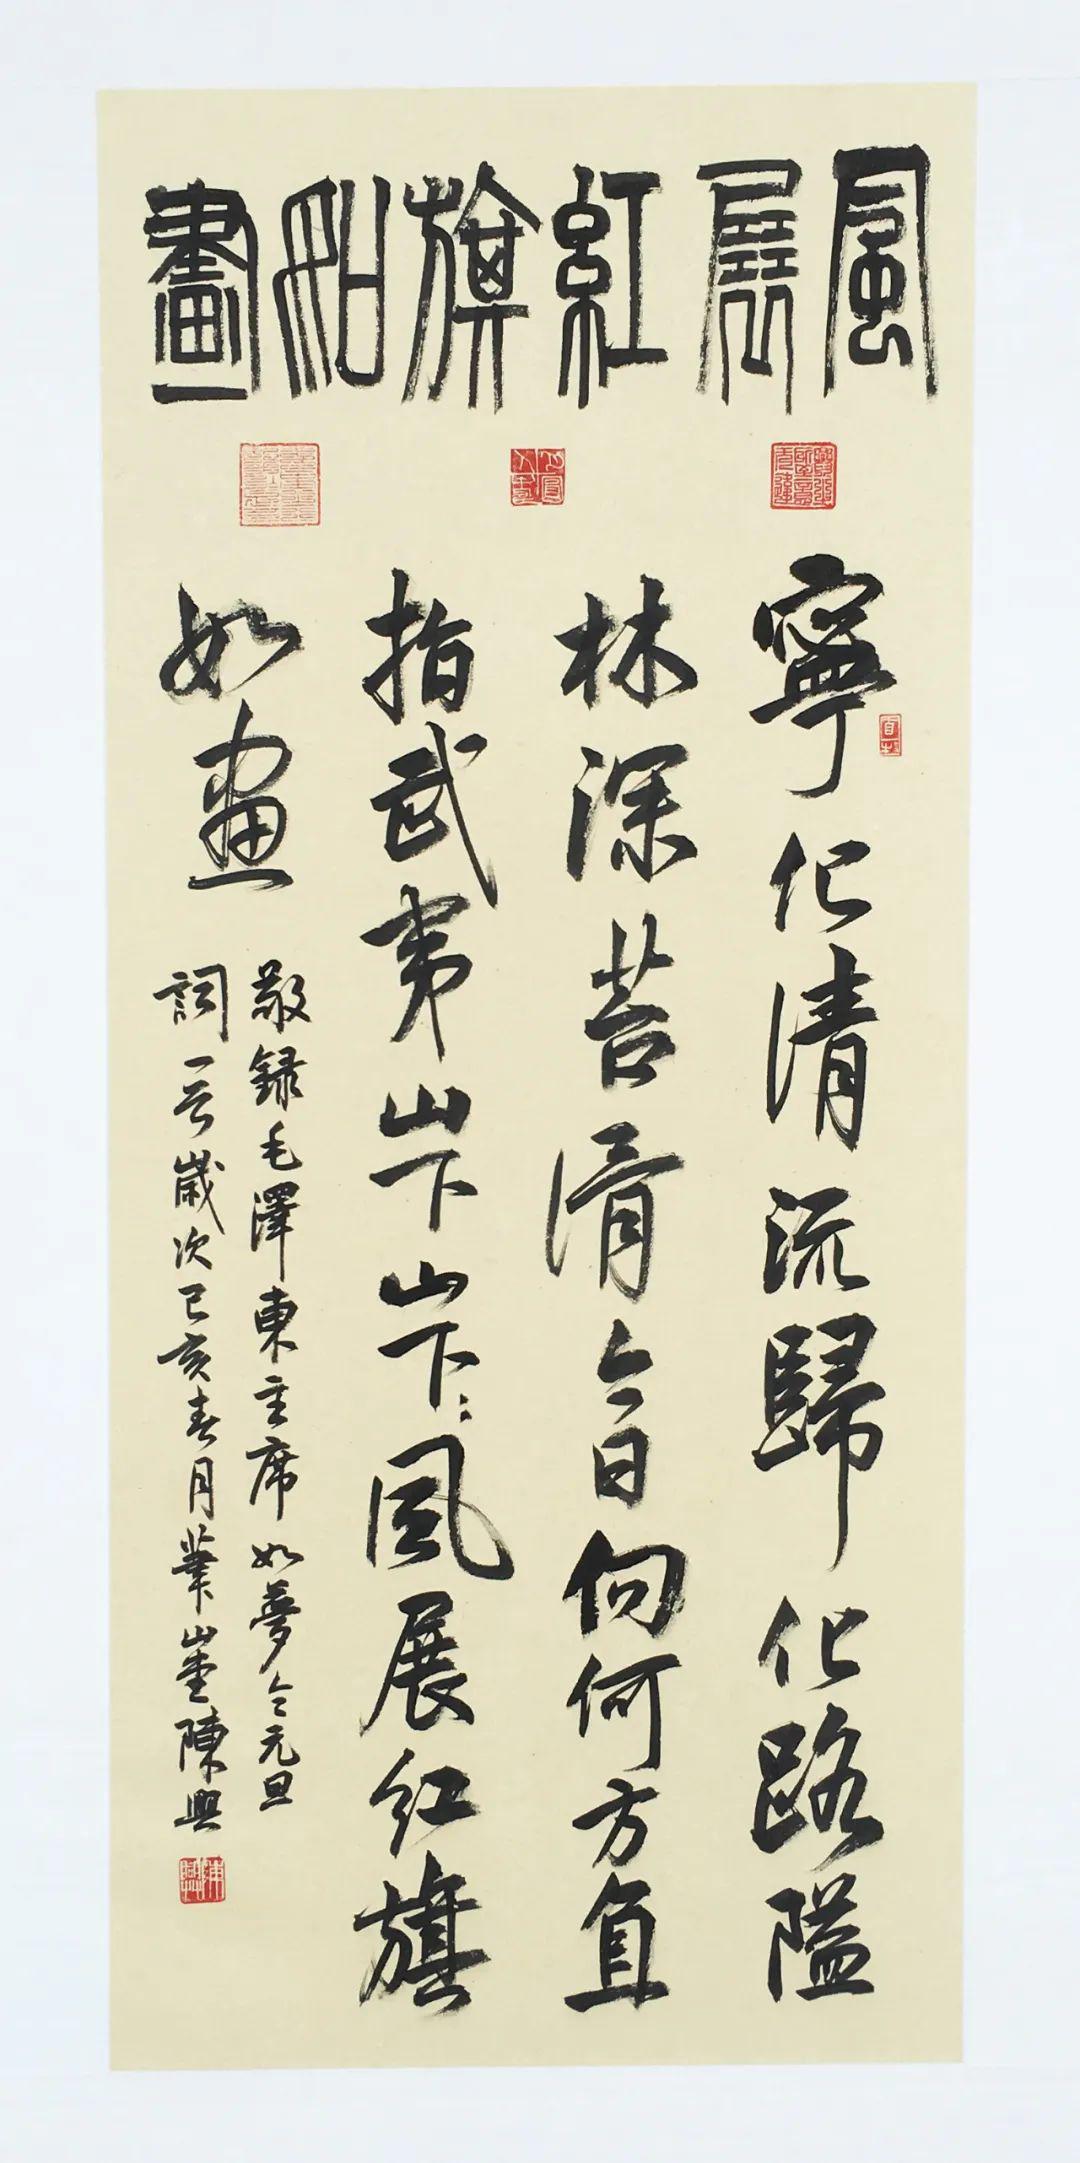 風展紅旗如畫
寧化清流歸化路隘
林深苔滑今日向何方直
指武夷山下山下〻風展红旗
如畫
敬録毛澤東主席如夢令元旦
詞一首歲次己亥春月陳興